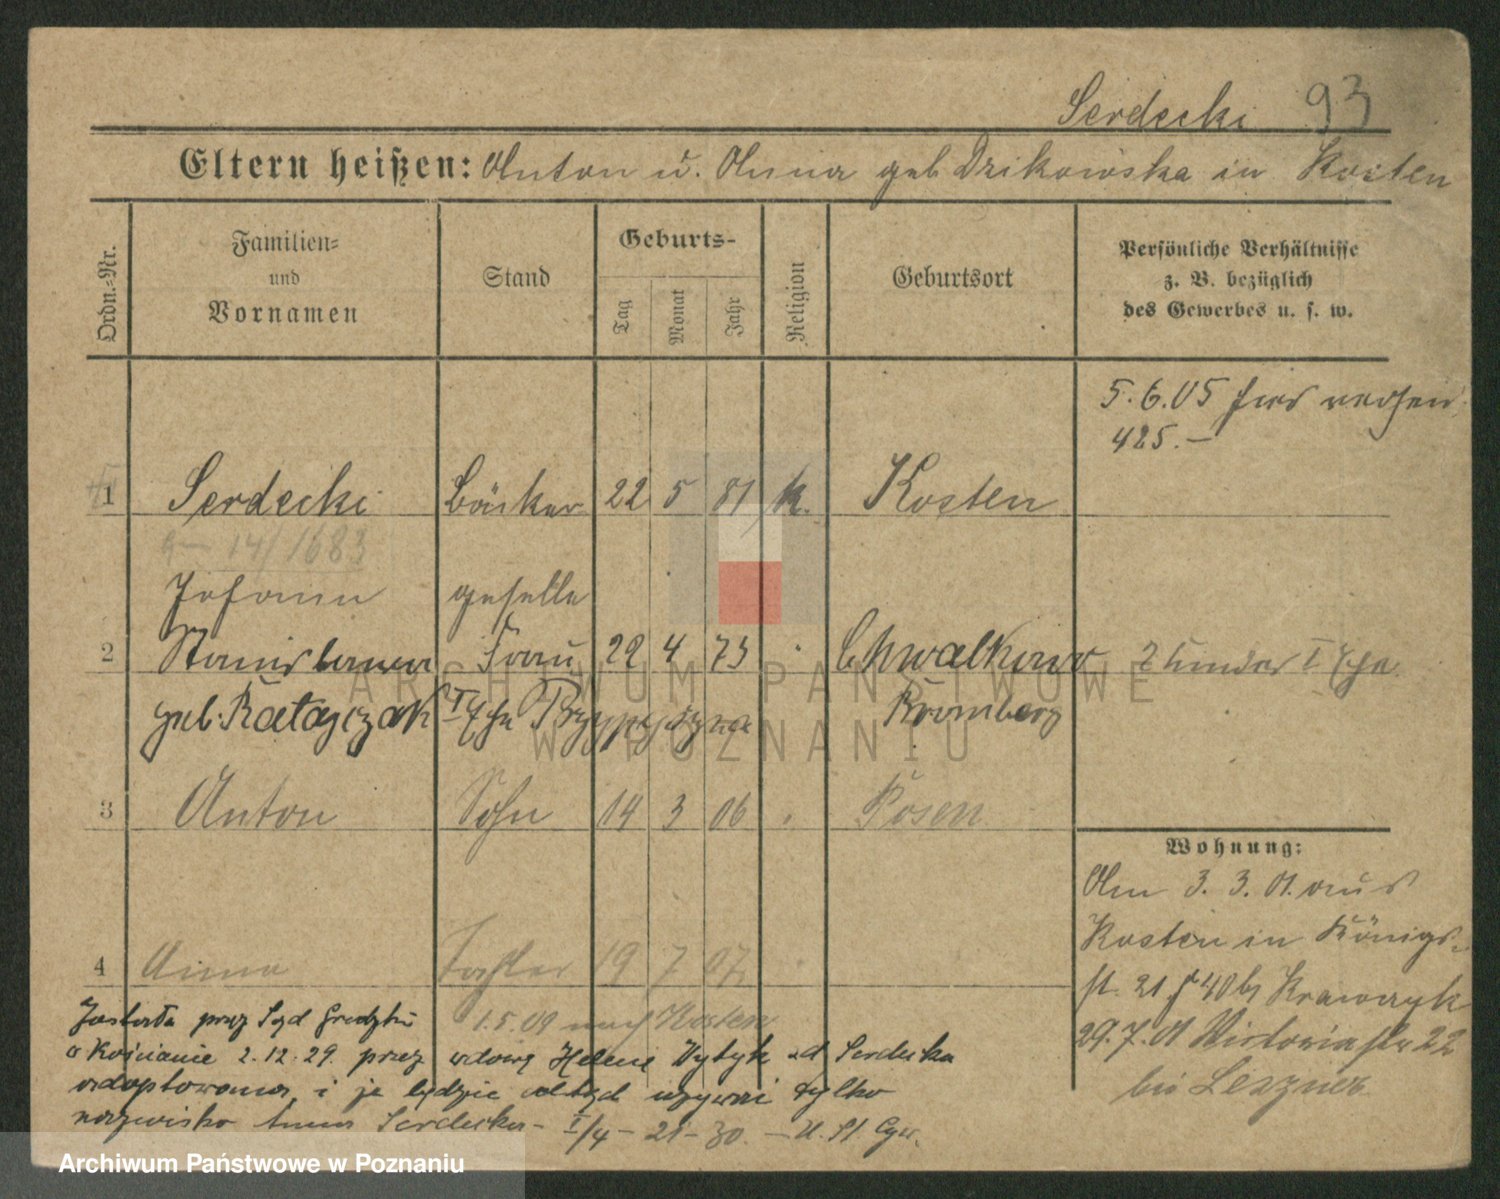 Serdecki 93
Eltern heißen: Anton u. Anna geb Dzikowska in Kosten
Ordn.-Nr.
Familien-
und
Vornamen
Stand
Geburts-
Tag
Monat
Jahr
Religion
Geburtsort
Persönliche Verhältnisse
z. B. bezüglich
des Gewerbes u. s. w.
5.6.05
425.-
1 Serdecki Bäcker 22 5 81 k. Kosten
14/1683
Johann geselle
2 Stanislawa Frau 22 4 73 Chwalkowo 2 Kinder I Ehe
geb. Ratajczak I Ehe Przypyszna Kromberg
3 Anton Sohn 14 3 06 Posen
Wohnung:
Am 3. 3. 01. aus
Kosten in Königs-
st. 21 bei Krawczyk
29.7.01 Victoriastr 22
bei Leszner
4 Anna Tochter 19 7 07
1.5.09 nach Kosten
Została przez Sąd Grodzki
w Kościanie 2.12.29. przez wdowę Helenę Serdecka
adoptowana, i je będzie odtąd używać tylko
nazwisko Anna Serdecka - I/4 - 21-30. -
ARCHIWUM PAŃSTWOWE
W POZNANIU
Archiwum Państwowe w Poznaniu